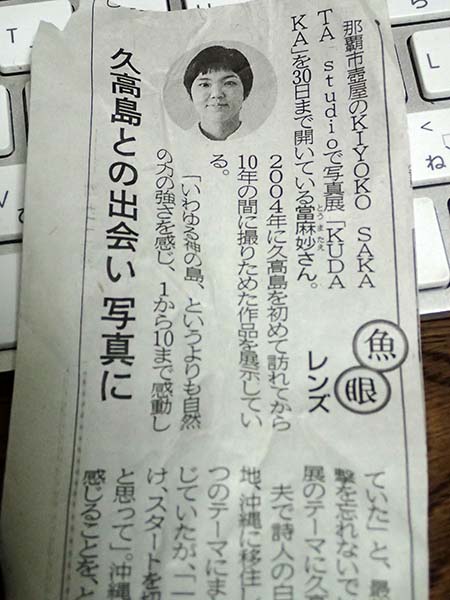 魚眼
レンズ
久高島との出会い 写真に
那覇市壺屋のKIYOKO SAKA
TA studioで写真展「KUDA
KA」を30日まで開いている當麻妙さん。
とうまたえ
2004年に久高島を初めて訪れてから
10年の間に撮りためた作品を展示してい
る。
「いわゆる神の島、というよりも自然
の力の強さを感じ、1から10まで感動し
ていた」と、最
撃を忘れないで
展のテーマに久高
夫で詩人の白
地、沖縄に移住し
つのテーマにま
じていたが、「一
け、スタートを切
と思って」。沖縄
感じることを、と